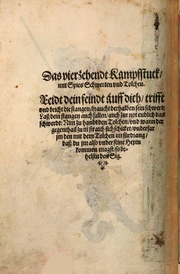 Das vierzehendt Kampfstuck/
mit Spies Schwerten und Tolchen.
dein feindt auff dich/ trifft
und bricht die stangen/ haucht derhalben sein schwert
Laß dein stangen auch fallen/ auch zur not endlich das
schwerdt Nun zu handt den Tolchen/ und wann der
gegenthail zu sich schicket/ underfar
jm den mit dem Tolchen
daß du jm also under seine Hexen
kommen magst so be-
helstu den Sig.